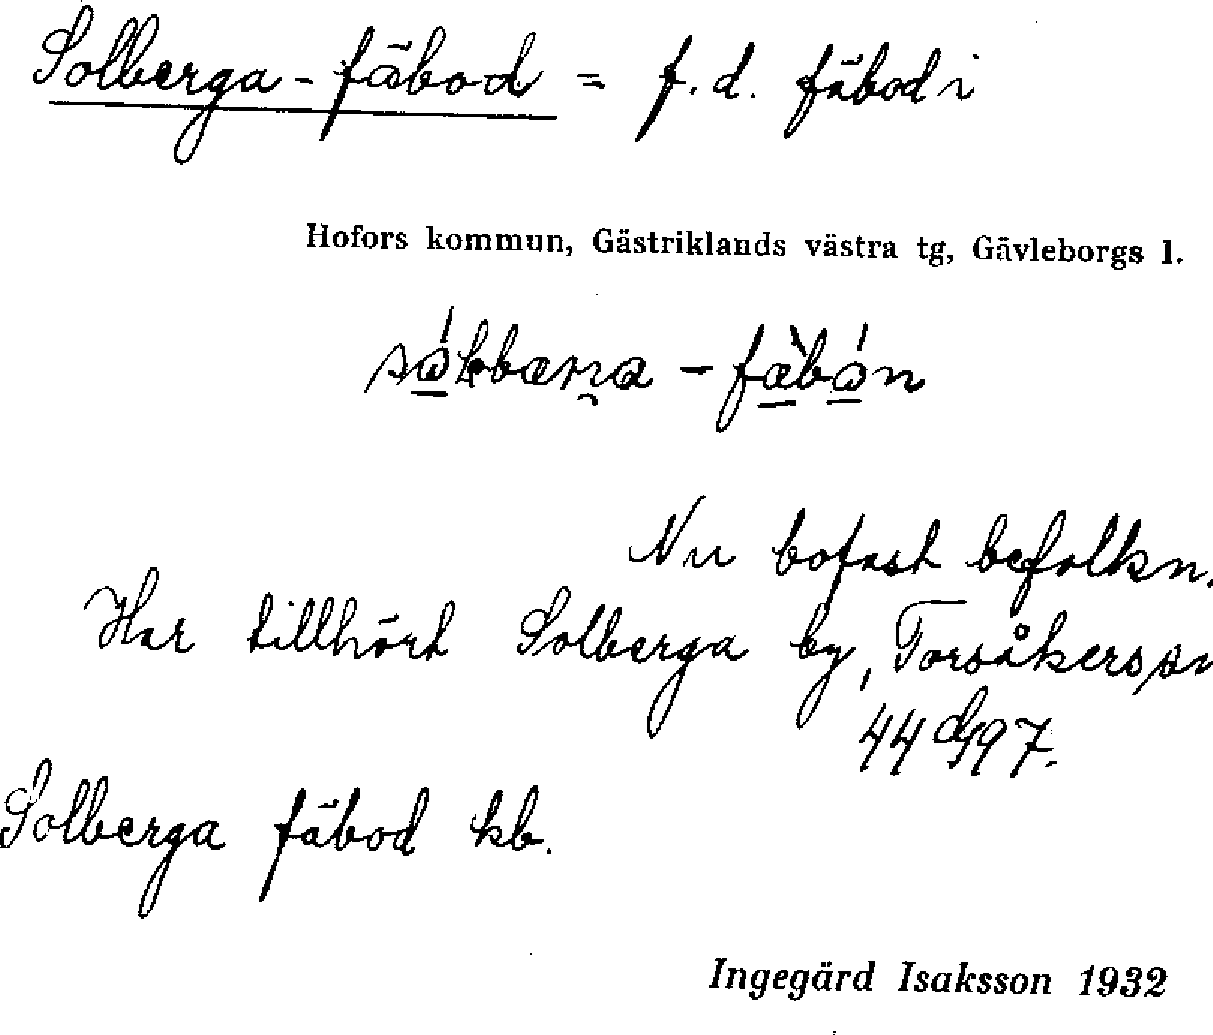 Solberga-fäbod = f.d. fäbod i
Hofors kommun, Gästriklands västra tg, Gävleborgs l.
Nu bofast befolkn.
Har tillhört Solberga by, Torsåkers sn
44 G97.
Solberga fäbod kb.
Ingegärd Isaksson 1932